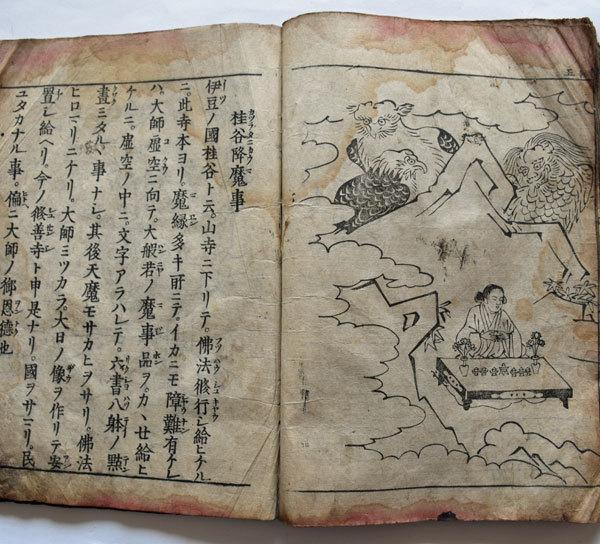 五
桂谷降魔事
伊豆ノ國桂谷ト云。山寺ニ下リテ。佛法修行シ給ヒケル
ニ。此寺本ヨリ。魔縁多キ所ニテ。イカニモ障難有ケレ
ハ。大師虚空ニ向テ。大般若ノ魔事品ヲ。カヽせ給ヒ
ケルニ。虚空ノ中ニ。文字アラハレテ。六書八躰ノ點
畫ミタルヽ事ナシ。其後天魔モサカヒヲサリ。佛法
ヒロマリニナリ。大師ミツカラ。大日ノ像ヲ作リテ安
置シ給ヘリ。今ノ修善寺ト申是ナリ。國ヲサマリ。民
ユタカナル事。偏ニ大師ノ御恩德也